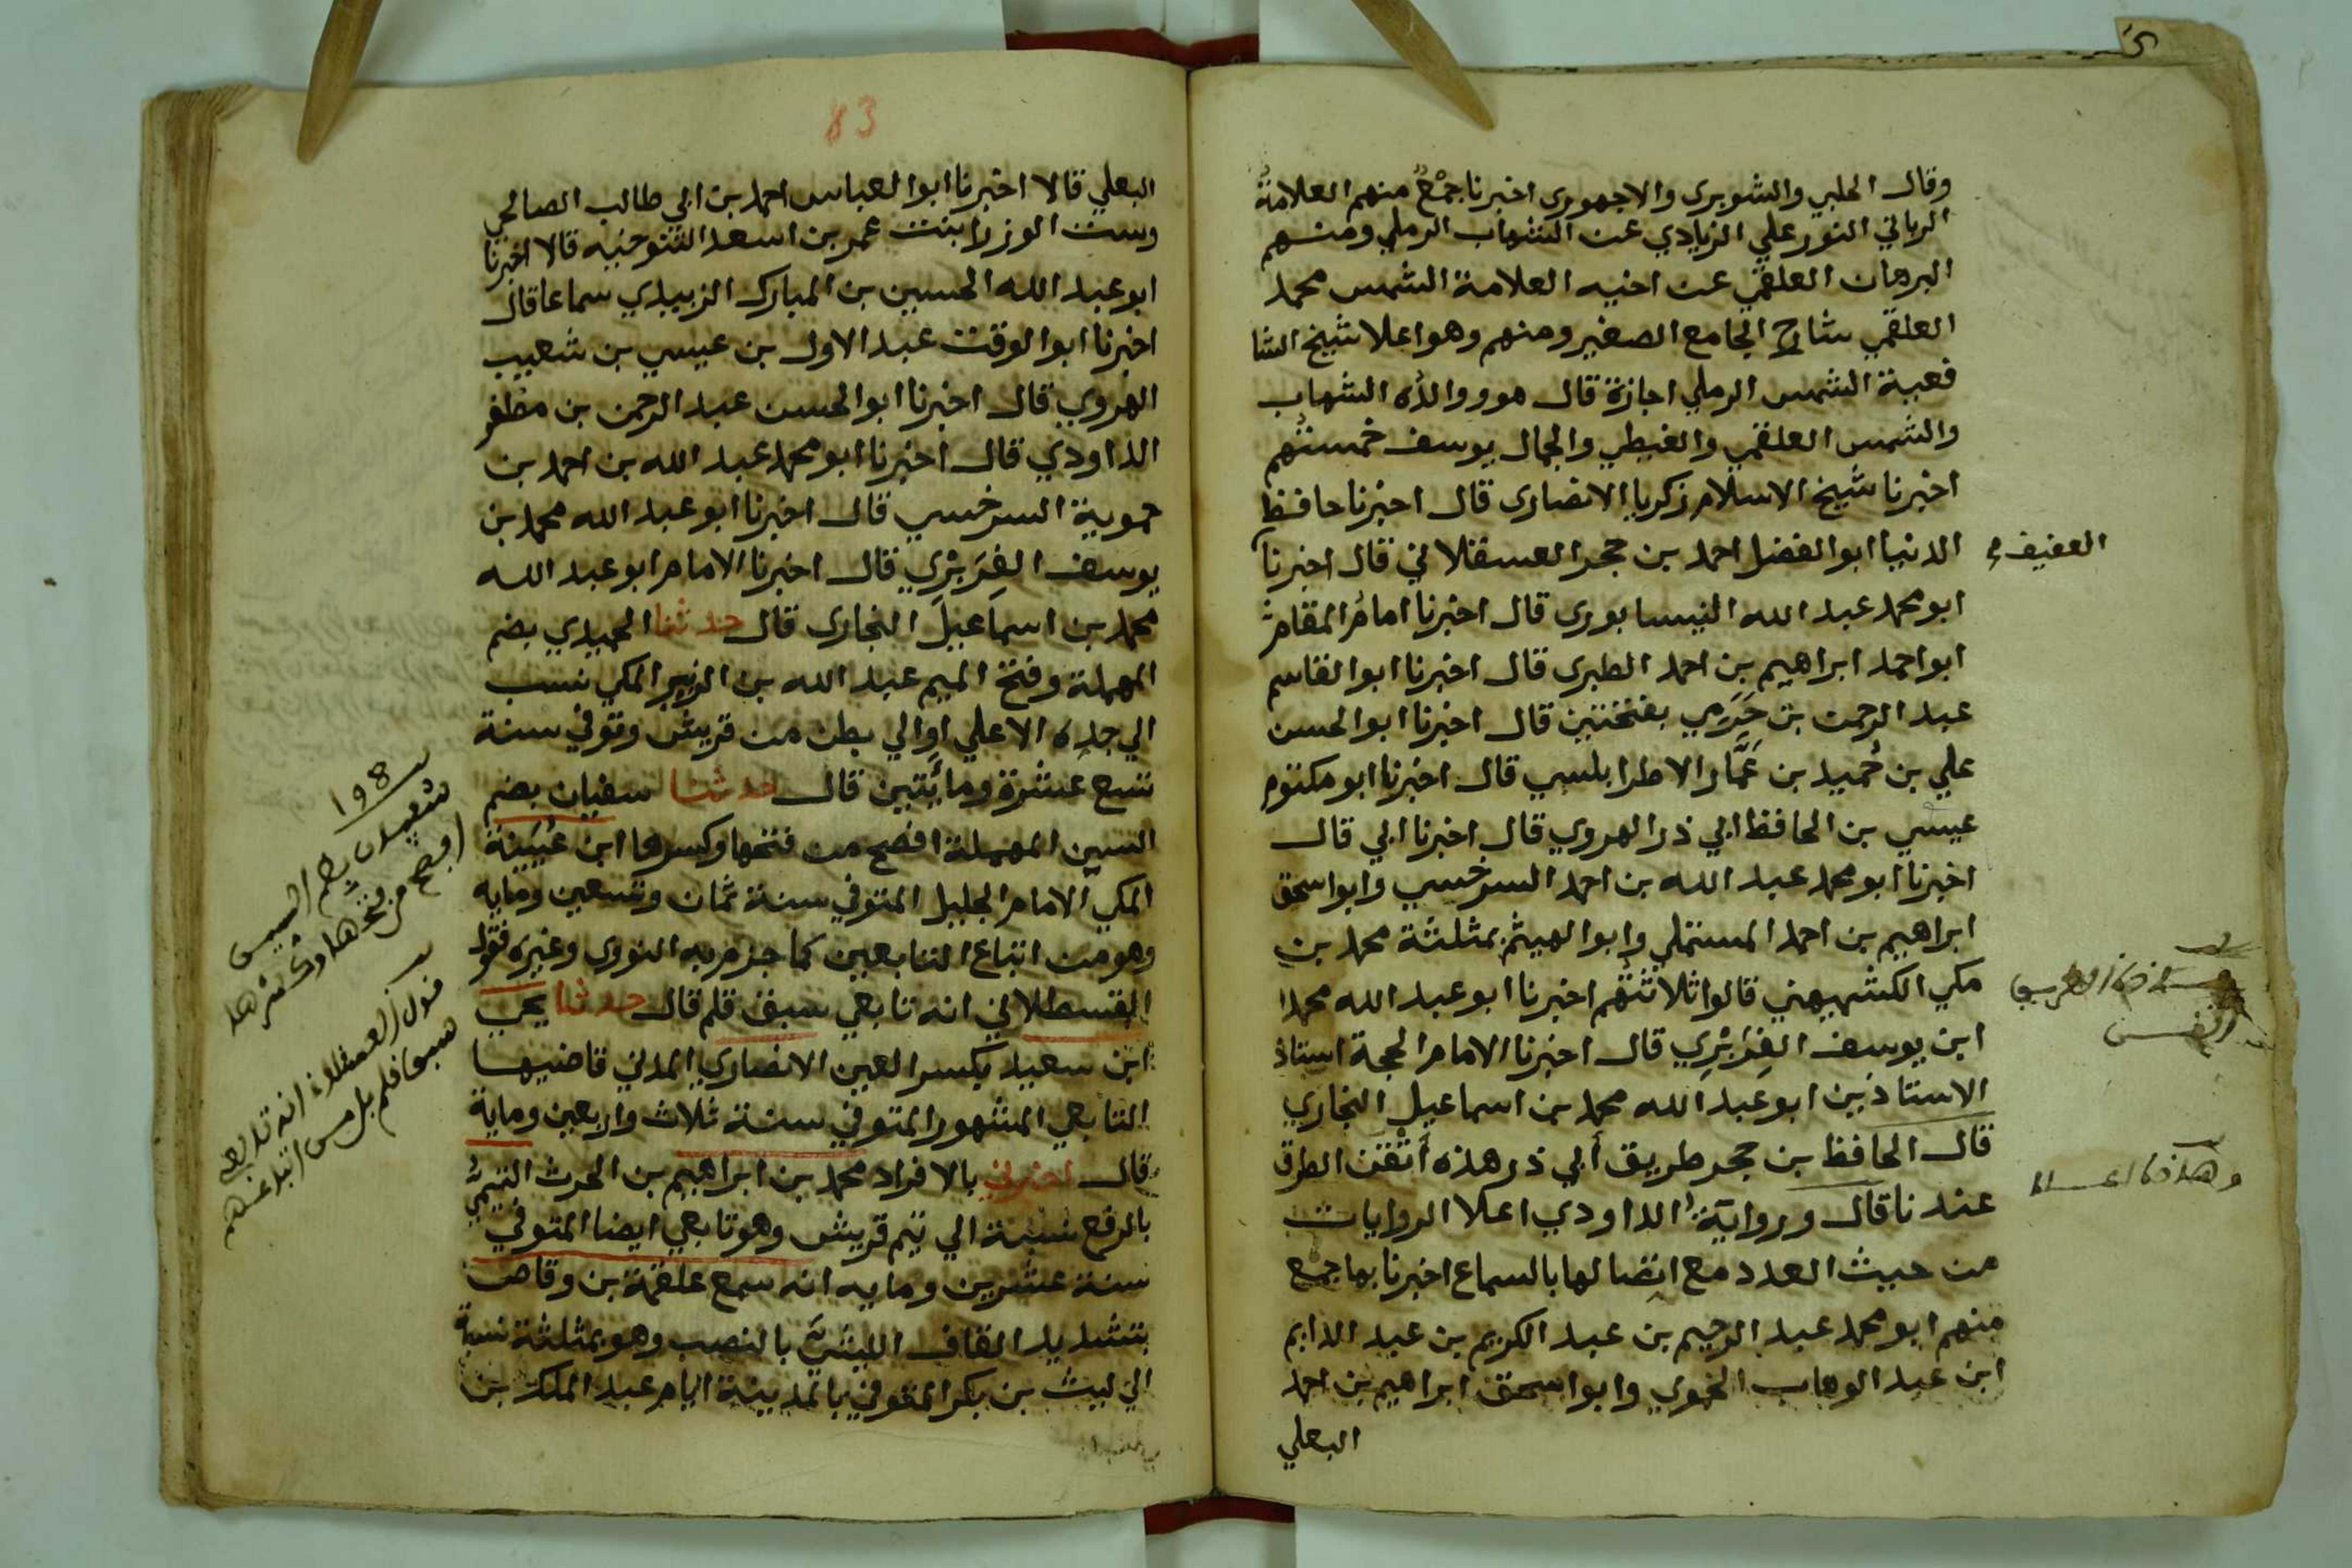 وقال الحلبي والشوبرى والاجهورى اخبرنا جمْعٌ منهم العلامةُ
الرباني النور علي الزيادي عن الشهاب الرملي ومنهم
البرهان العلقمي عن اخيه العلامة الشمس محمد
العلقمي شارح الجامع الصغير ومنهم وهو اعلا شيخ الشا
فعية الشمس الرملي اجازة قال هو ووالدُه الشهاب
والشمس العلقمي والغيطي والجمال يوسف خمستُهم
اخبرنا شيخ الاسلام زكريا الانصارى قال اخبرنا حافظ
الدنيا ابو الفضل احمد بن حجر العسقلاني قال اخبرنا
العفيف
ابو محمد عبد الله النيسابورى قال اخبرنا امامُ المقام
ابو احمد ابراهيم بن احمد الطبرى قال اخبرنا ابو القاسم
عبد الرحمن بن حَرَمِي بفتحتين قال اخبرنا ابو الحسن
علي بن حُميد بن عَمَّار الاطرابلسي قال اخبرنا ابو مكتوم
عيسي بن الحافظ ابي ذر الهروي قال اخبرنا ابي قال
اخبرنا ابو محمد عبد الله بن احمد السرخسي وابو اسحق
ابراهيم بن احمد المستملي وابو الهيثم بمثلثة محمد بن
مكي الكشميهني قالوا ثلاثتُهم اخبرنا ابو عبد الله محمد
ابن يوسف الفِرَبْرِي قال اخبرنا الامام الحجة استاذ
الاستاذين ابو عبد الله محمد بن اسماعيل البخاري
قال الحافظ بن حجر طريق أبي ذر هذه أتْقَن الطرق
عندنا قال ورواية الداودي اعلا الروايات
من حيث العدد مع اتصالها بالسماع اخبرنا بها جمع
منهم ابو محمد عبد الرحيم بن عبد الكريم بن عبد الدايم
ابن عبد الوهاب الحموي وابو اسحق ابراهيم بن احمد
البعلي
83
البعلي قالا اخبرنا ابو العباس احمد بن ابي طالب الصالحي
وست الوزرا بنت عمر بن اسعد التنوخيه قالا اخبرنا
ابو عبد الله الحسين بن المبارك الزبيدي سماعا قال
اخبرنا ابو الوقت عبد الاول بن عيسي بن شعيب
الهروي قال اخبرنا ابو الحسن عبد الرحمن بن مظفر
الداودي قال اخبرنا ابو محمد عبد الله بن احمد بن
حموية السرخسي قال اخبرنا ابو عبد الله محمد بن
يوسف الفِرَبْرِي قال اخبرنا الامام ابو عبد الله
محمد بن اسماعيل البخارى قال حدثنا الحميدي بضم
المهملة وفتح الميم عبد الله بن الزبير المكي نسب
الي جده الاعلي او الي بطن من قريش وتوفي سنة
تسع عشرة ومائتين قال حدثنا سفيان بضم
السين المهملة افصح من فتحها وكسرها ابن عُيَيْنة
المكي الامام الجليل المتوفي سنة ثمان وتسعين ومايه
وهو من اتباع التابعين كما جزم به النووى وغيره فقول
القسطلاني انه تابعي سبق قلم قال حدثنا يحيي
ابن سعيد بكسر العين الانصاري المدني قاضيها
التابعي المشهور المتوفي سنة ثلاث واربعين وماية
قال اخبرني بالافراد محمد بن ابراهيم بن الحرث التيميُّ
بالرفع نسبة الي تيم قريش وهو تابعي ايضا المتوفي
سنة عشرين ومايه انه سمع علقمة بن وقاص
بتشديد القاف الليثيَّ بالنصب وهو بمثلثة نسبة
الي ليث بن بكر المتوفي بالمدينة ايام عبد الملك بن
١٩٨
سفيان بضم السين
افصح من فتحها وكسرها
قول القسطلاني انه تابعي
سبق قلم بل من اتباعهم